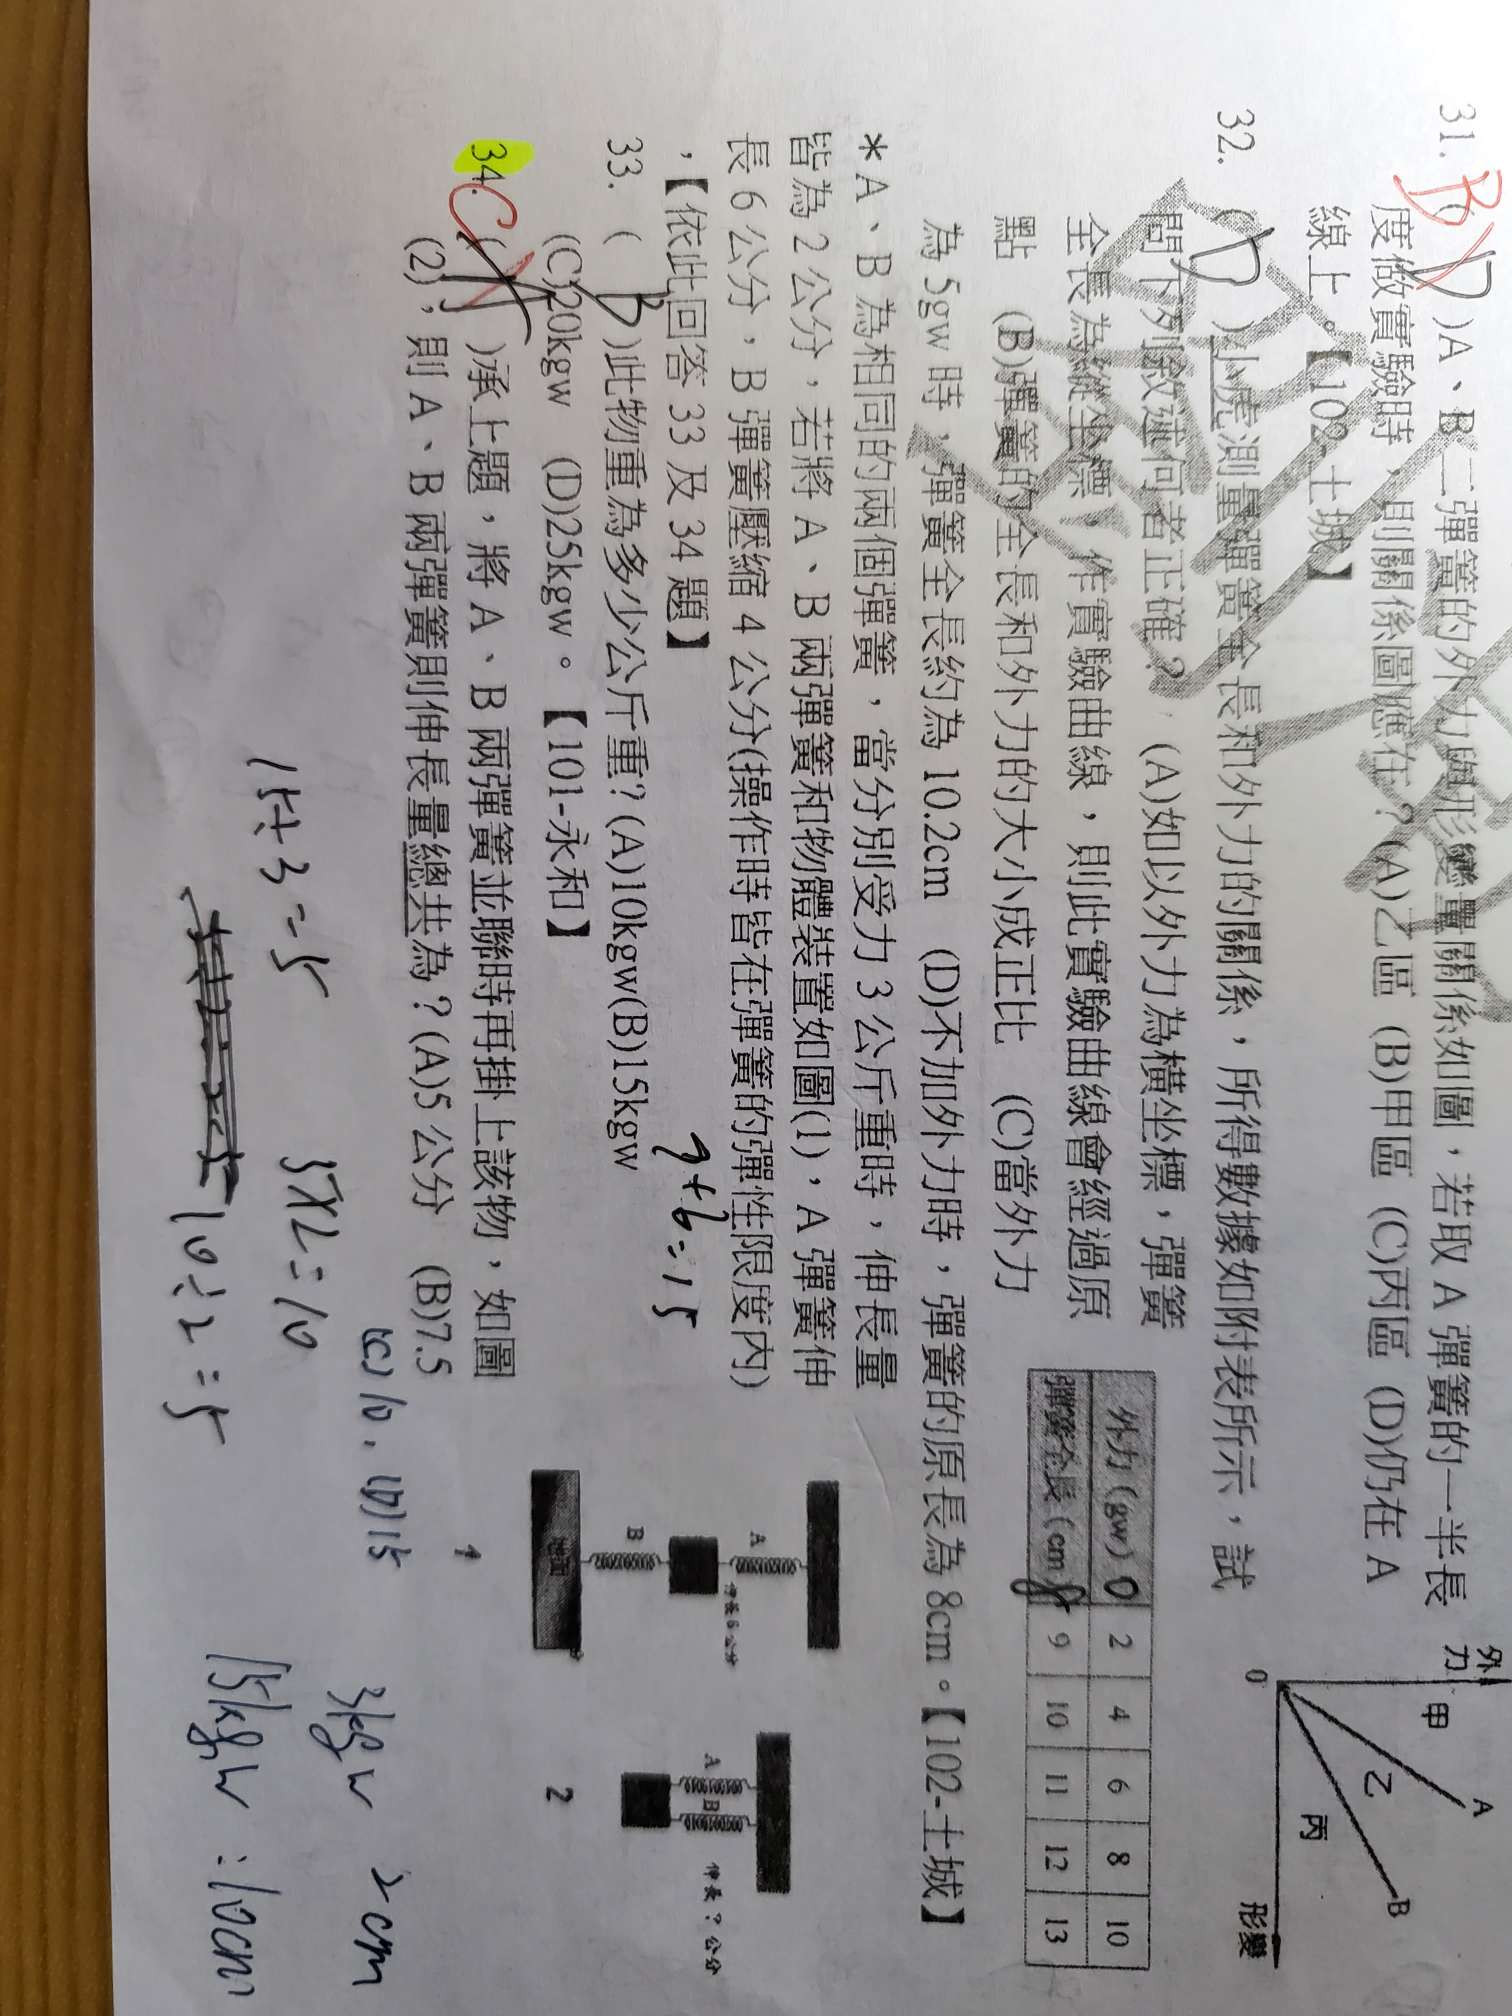 31.( D )A、B二彈簧的外力與形變量關係如圖，若取A彈簧的一半長
B
度做實驗時，則關係圖應在？(A)乙區 (B)甲區 (C)丙區 (D)仍在A
線上。【102-土城】
外力
甲
A
乙
B
丙
0
形變
32. ( D )小虎測量彈簧全長和外力的關係，所得數據如附表所示，試
問下列敘述何者正確？ (A)如以外力為橫坐標，彈簧
全長為縱坐標，作實驗曲線，則此實驗曲線會經過原
點 (B)彈簧的全長和外力的大小成正比 (C)當外力
為5gw時，彈簧全長約為10.2cm (D)不加外力時，彈簧的原長為8cm。【102-土城】
外力(gw) 0 2 4 6 8 10
彈簧全長(cm) 8 9 10 11 12 13
＊A、B為相同的兩個彈簧，當分別受力3公斤重時，伸長量
皆為2公分，若將A、B兩彈簧和物體裝置如圖(1)，A彈簧伸
長6公分，B彈簧壓縮4公分(操作時皆在彈簧的彈性限度內)
，【依此回答33及34題】
9+6=15
33. ( B )此物重為多少公斤重？(A)10kgw(B)15kgw
(C)20kgw (D)25kgw。【101-永和】
34. ( A )承上題，將A、B兩彈簧並聯時再掛上該物，如圖
C
(2)，則A、B兩彈簧則伸長量總共為？(A)5公分 (B)7.5
(C)10. (D)15
A
伸長6公分
B
地面
1
A
B
伸長？公分
2
15÷3=5
5×2=10
10÷2=5
3kgw 2cm
15kgw :10cm